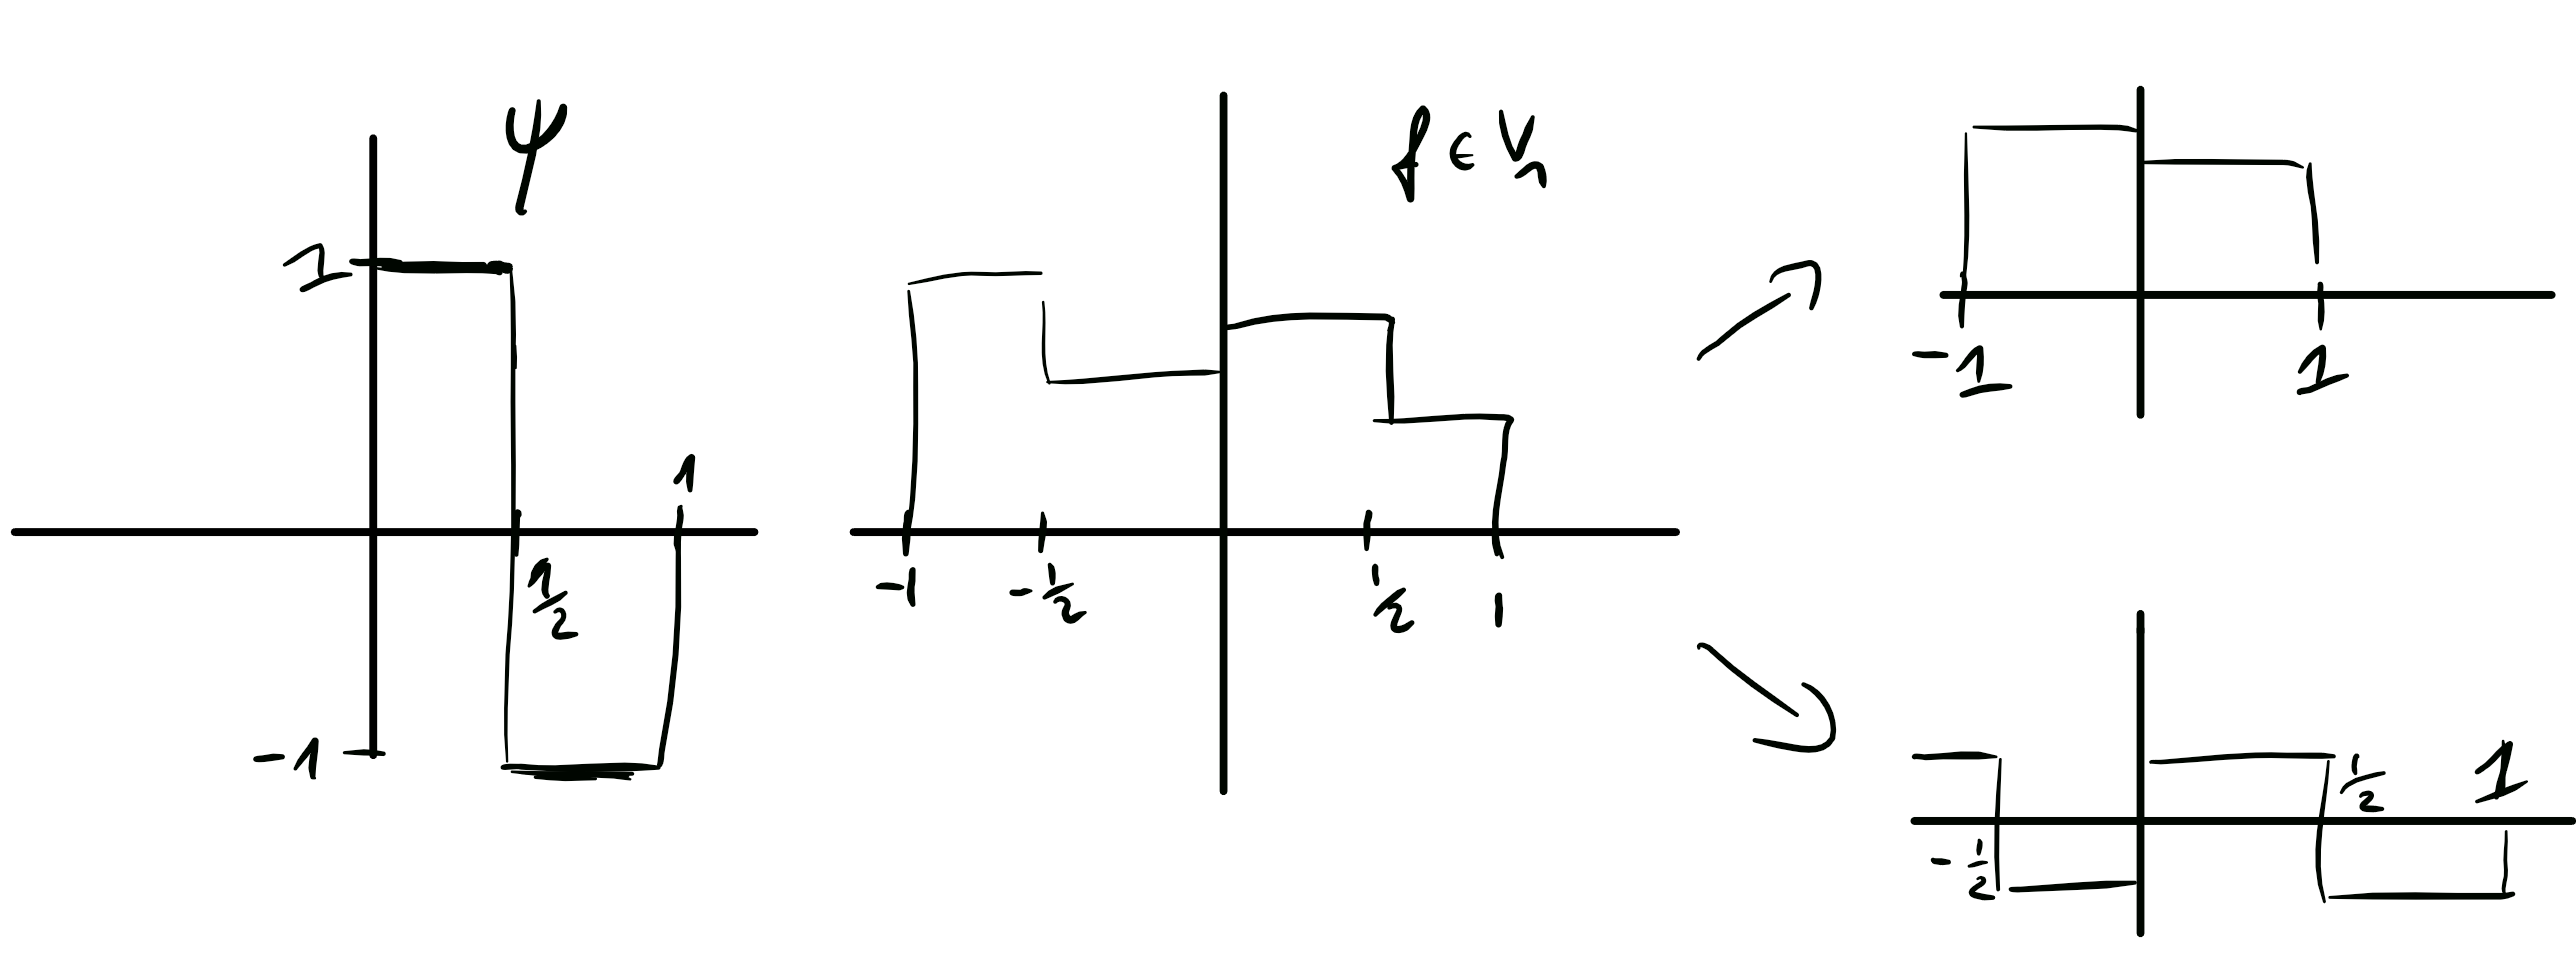 ψ
1
1
1/2
-1
f ∈ Vn
-1
-1/2
1/2
1
-1
1
1/2
1
-1/2